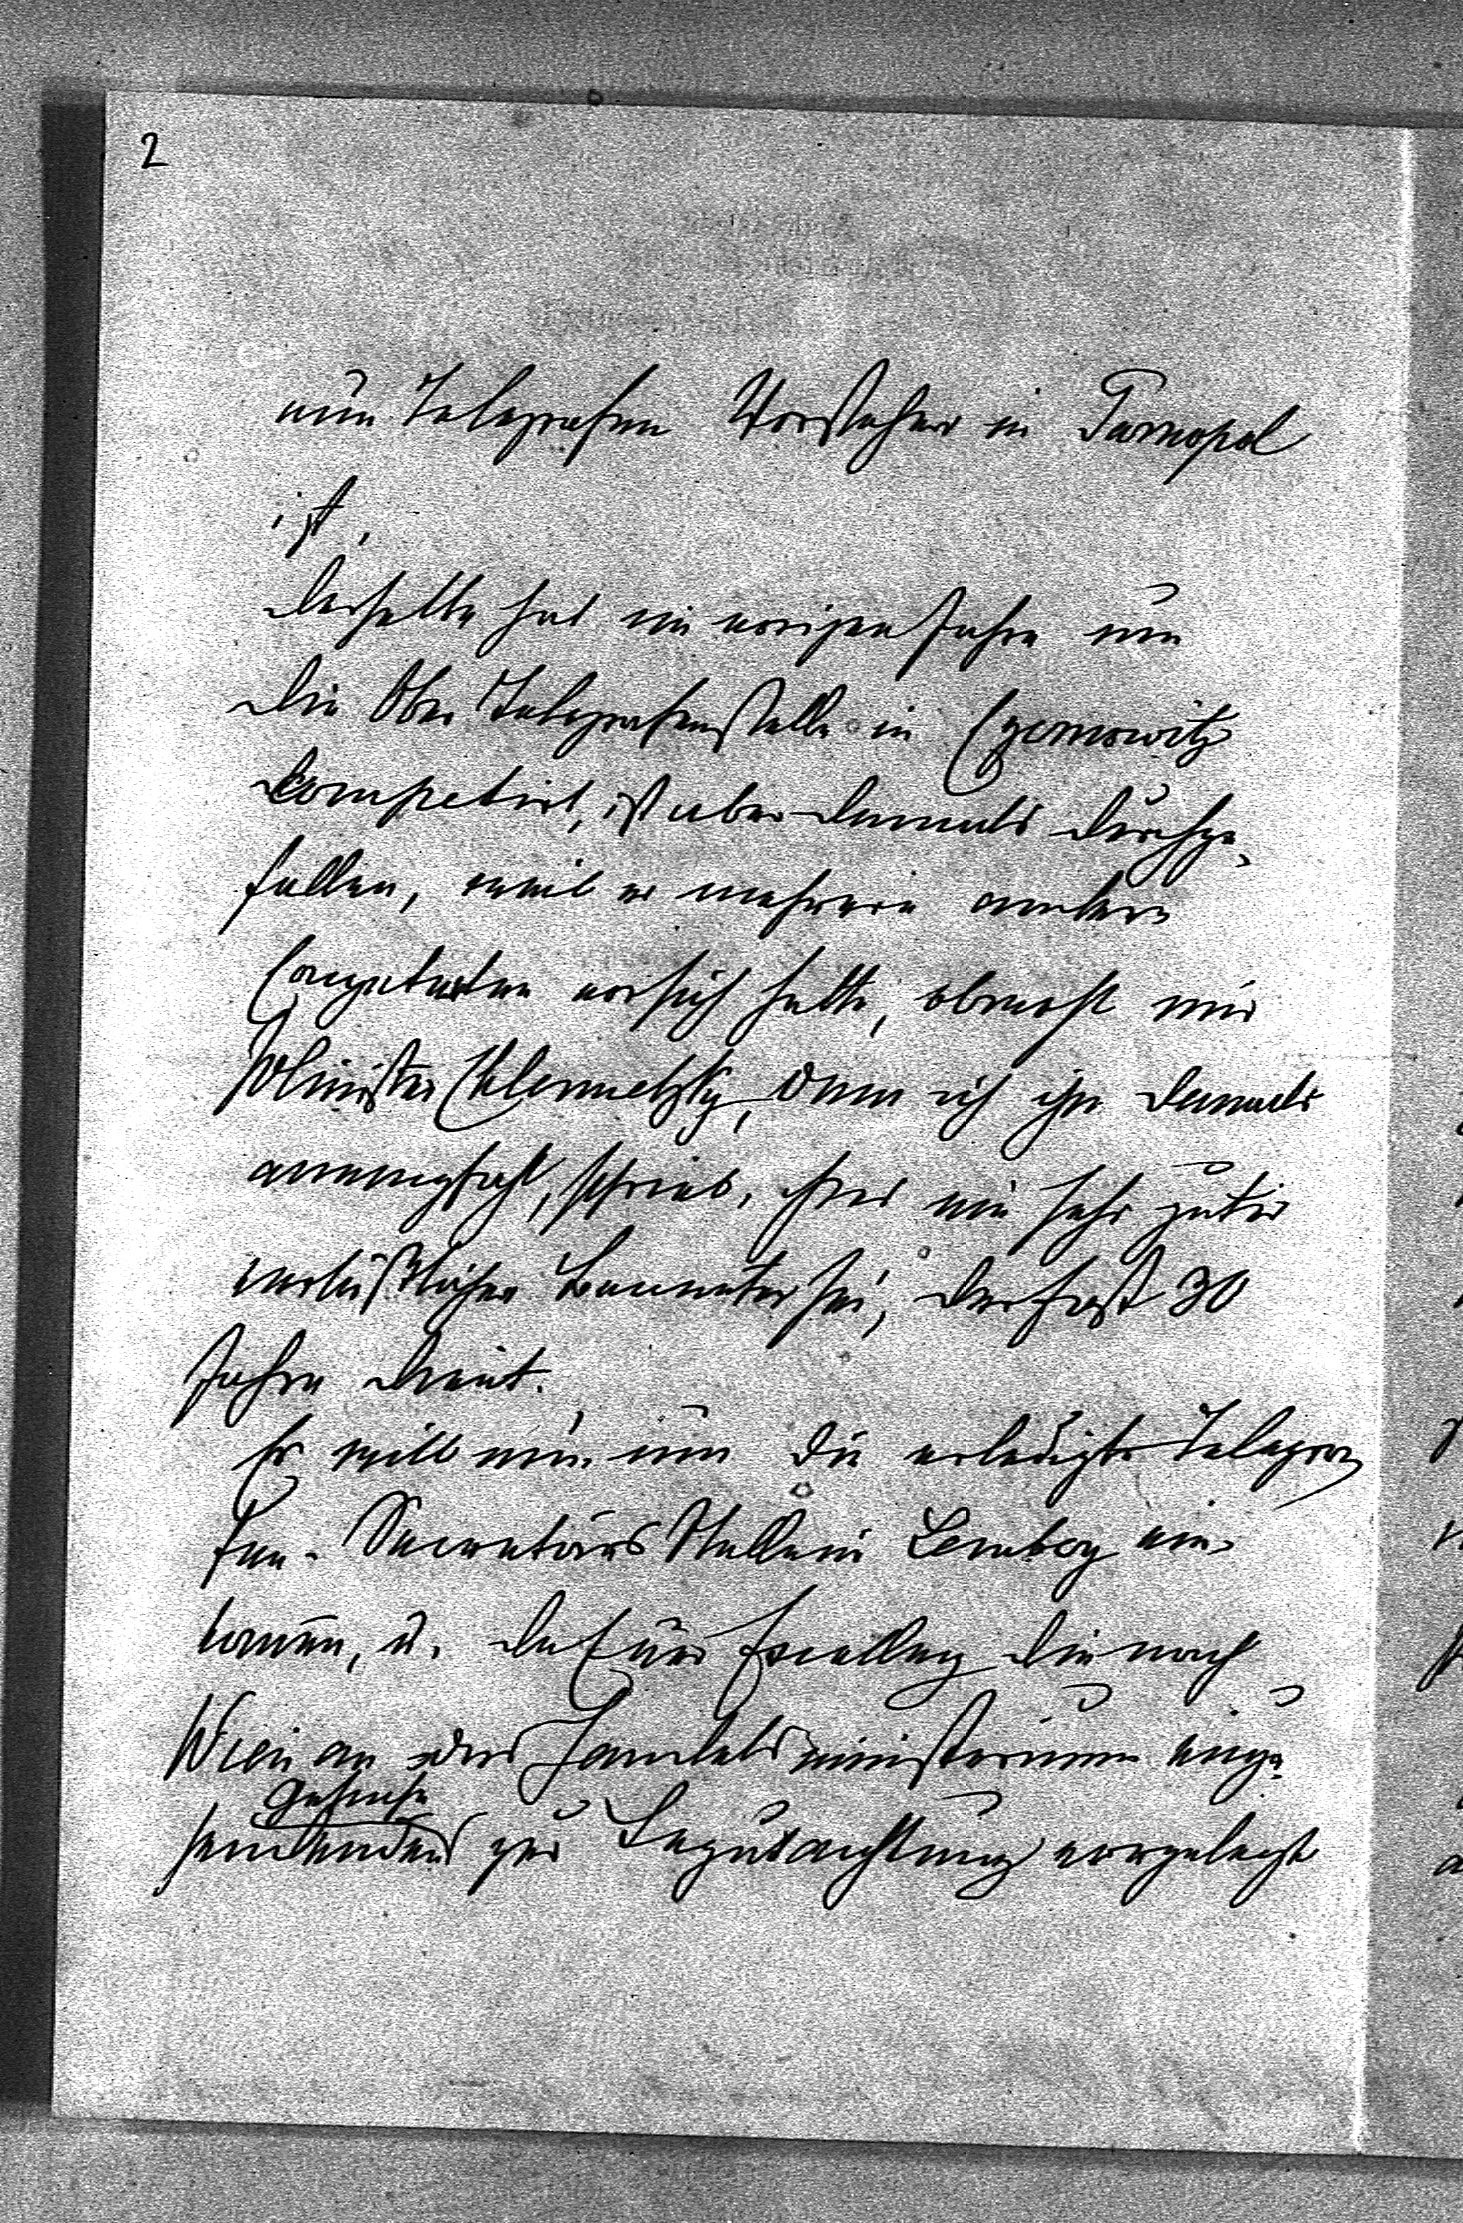 2
nun Telegrafen Vorsteher in Tarnopol
ist,
Derselbe hat im vorigen Jahre um
die Ober Telegrafenstelle in Czernowitz
competirt, ist aber damals durchge-
fallen, weil er mehrere andere
Competenten vor sich hatte, obwohl mir
Minister Chlumetzky, dem ich ihn damals
anempfahl, schrieb, er ein sehr guter
verläßlicher Beamter sei, der fast 30
Jahre dient.
Er will nun um die erledigte Telegra-
fen-Secretärs Stelle in Lemberg ein-
kommen, u. da Euer Excellenz die nach
Wien an das Handelsministerium einzu-
Gesuche
sendenden zur Begutachtung vorgelegt